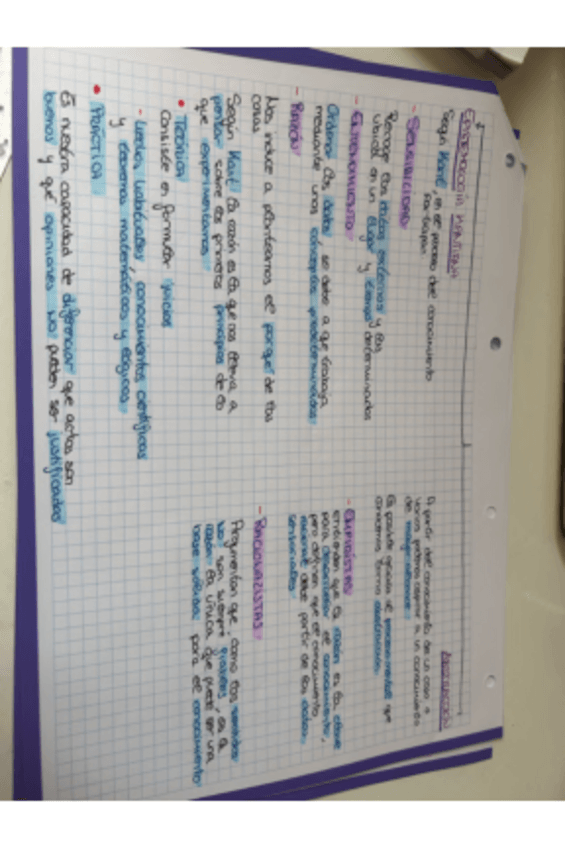 EPISTEMOLOGÍA KANTIANA
Según Kant, en el proceso del conocimiento
participan
- SENSIBILIDAD
Recoge los datos externos y los
ubica en un lugar y tiempo determinados
- ENTENDIMIENTO
Ordena los datos, se debe a que trabaja
mediante unos conceptos predeterminados
- RAZÓN
Nos induce a plantearnos el porqué de las
cosas
Según Kant la razón es la que nos lleva a
pensar sobre los primeros principios de lo
que experimentamos
• TEÓRICA
Consiste en formular juicios
- Leyes, conocimientos científicos
y teoremas matemáticos y lógicos
• PRÁCTICA
Es nuestra capacidad de diferenciar que actos son
buenos y qué opiniones no pueden ser justificadas
ABSTRACCIÓN
A partir del conocimiento de un caso o
varios podemos aspirar a un conocimiento
de mayor alcance
Es posible gracias al procesamiento que
conocemos como abstracción
- EMPIRISTAS
entienden que la razón es la clave
para desarrollar el conocimiento,
pero defienden que el conocimiento
racional debe partir de los datos
sensoriales
- RACIONALISTAS
Argumentan que, como los sentidos
no son siempre fiables, es la
razón la única que puede ser una
base sólida para el conocimiento